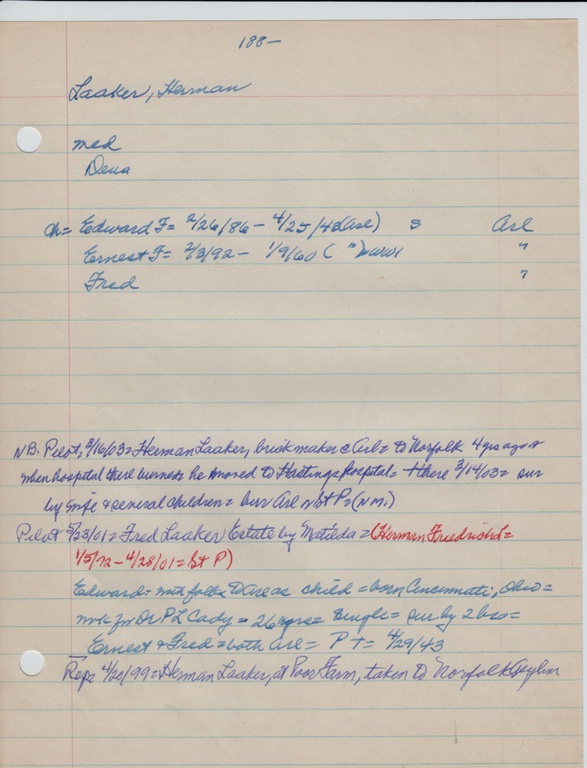 188-
Laaker, Herman
med
Dena
ch= Edward F= 2/26/86 - 4/25/43 (Arl) s Arl
Ernest F= 2/3/92 - 1/9/60 ( " ) WWI "
Fred "
NB. Pilot, 3/16/03= Herman Laaker, brick maker Arl= to Norfolk 4 yrs ago &
when hospital there burned he moved to Hastings hospital= + there 3/14/03= sur
by wife & several children= bur Arl = St P= (NM.)
Pilot 5/23/01= Fred Laaker Estate by Matilda= (Herman Friedrich=
1/5/72 - 4/28/01= St P)
Edward= with folks to area as child= born Cincinnati, Ohio=
wrk for Dr P L Cady = 26 yrs= single= sur by 2 bro=
Ernest & Fred= both Arl= P T= 4/29/43
Rep= 4/20/99= Herman Laaker, at Poor Farm, taken to Norfolk Asylum